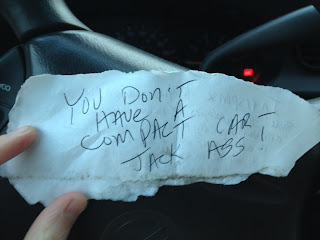 YOU DON'T
HAVE A
COMPACT CAR
JACK ASS!